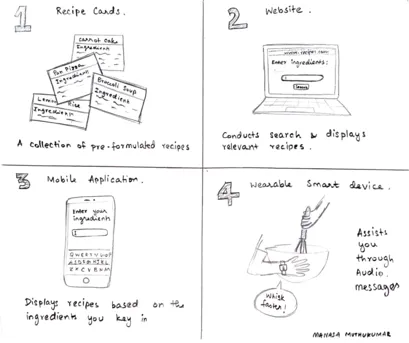 1
Recipe Cards.
Carrot Cake
Ingredient
Pan Pizza
Ingredient
Broccoli Soup
Ingredient
Lemon Rice
Ingredient
A collection of pre-formulated recipes
2
Website.
www.recipes.com
Enter ingredients:
Search
Conducts search & displays
relevant recipes.
3
Mobile Application.
Enter your
ingredient
QWERTYUIOP
ASDFGHJKL
ZXCVBNM
Displays recipes based on the
ingredients you key in
4
Wearable Smart device.
Assists
you
through
Audio
messages
Whisk
faster!
MANASA MUTHUKUMAR